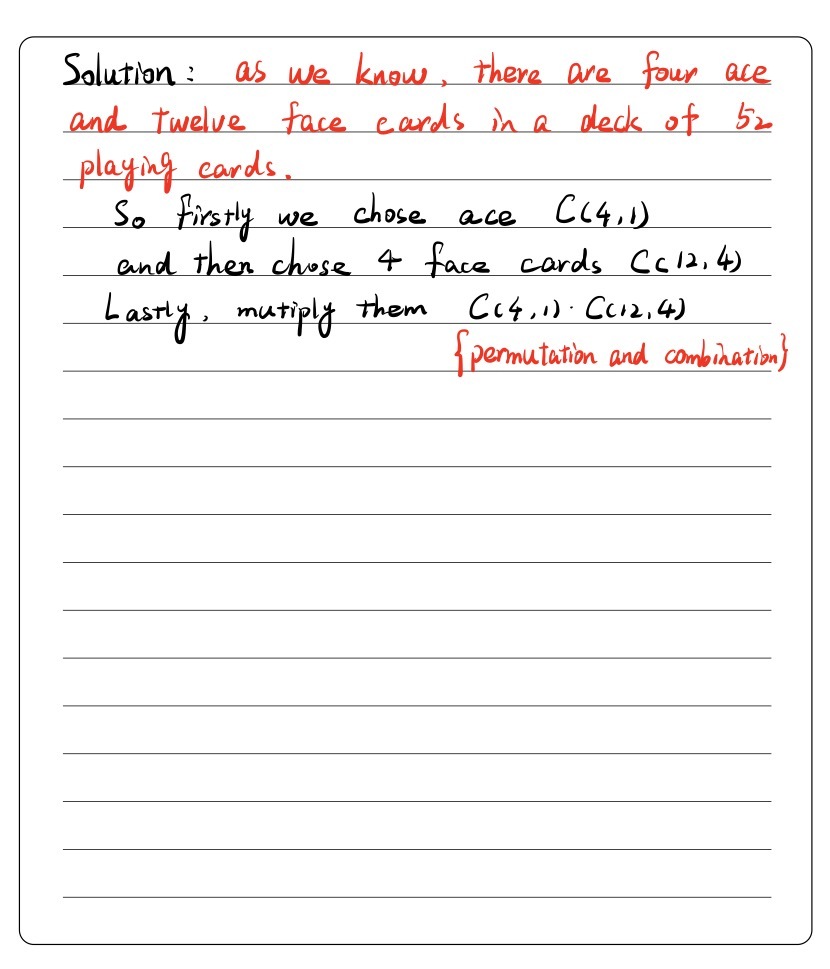 Solution: as we know, there are four ace
and twelve face cards in a deck of 52
playing cards.
So firstly we chose ace C(4,1)
and then chose 4 face cards C(12,4)
Lastly, mutiply them C(4,1)·C(12,4)
{permutation and combination}